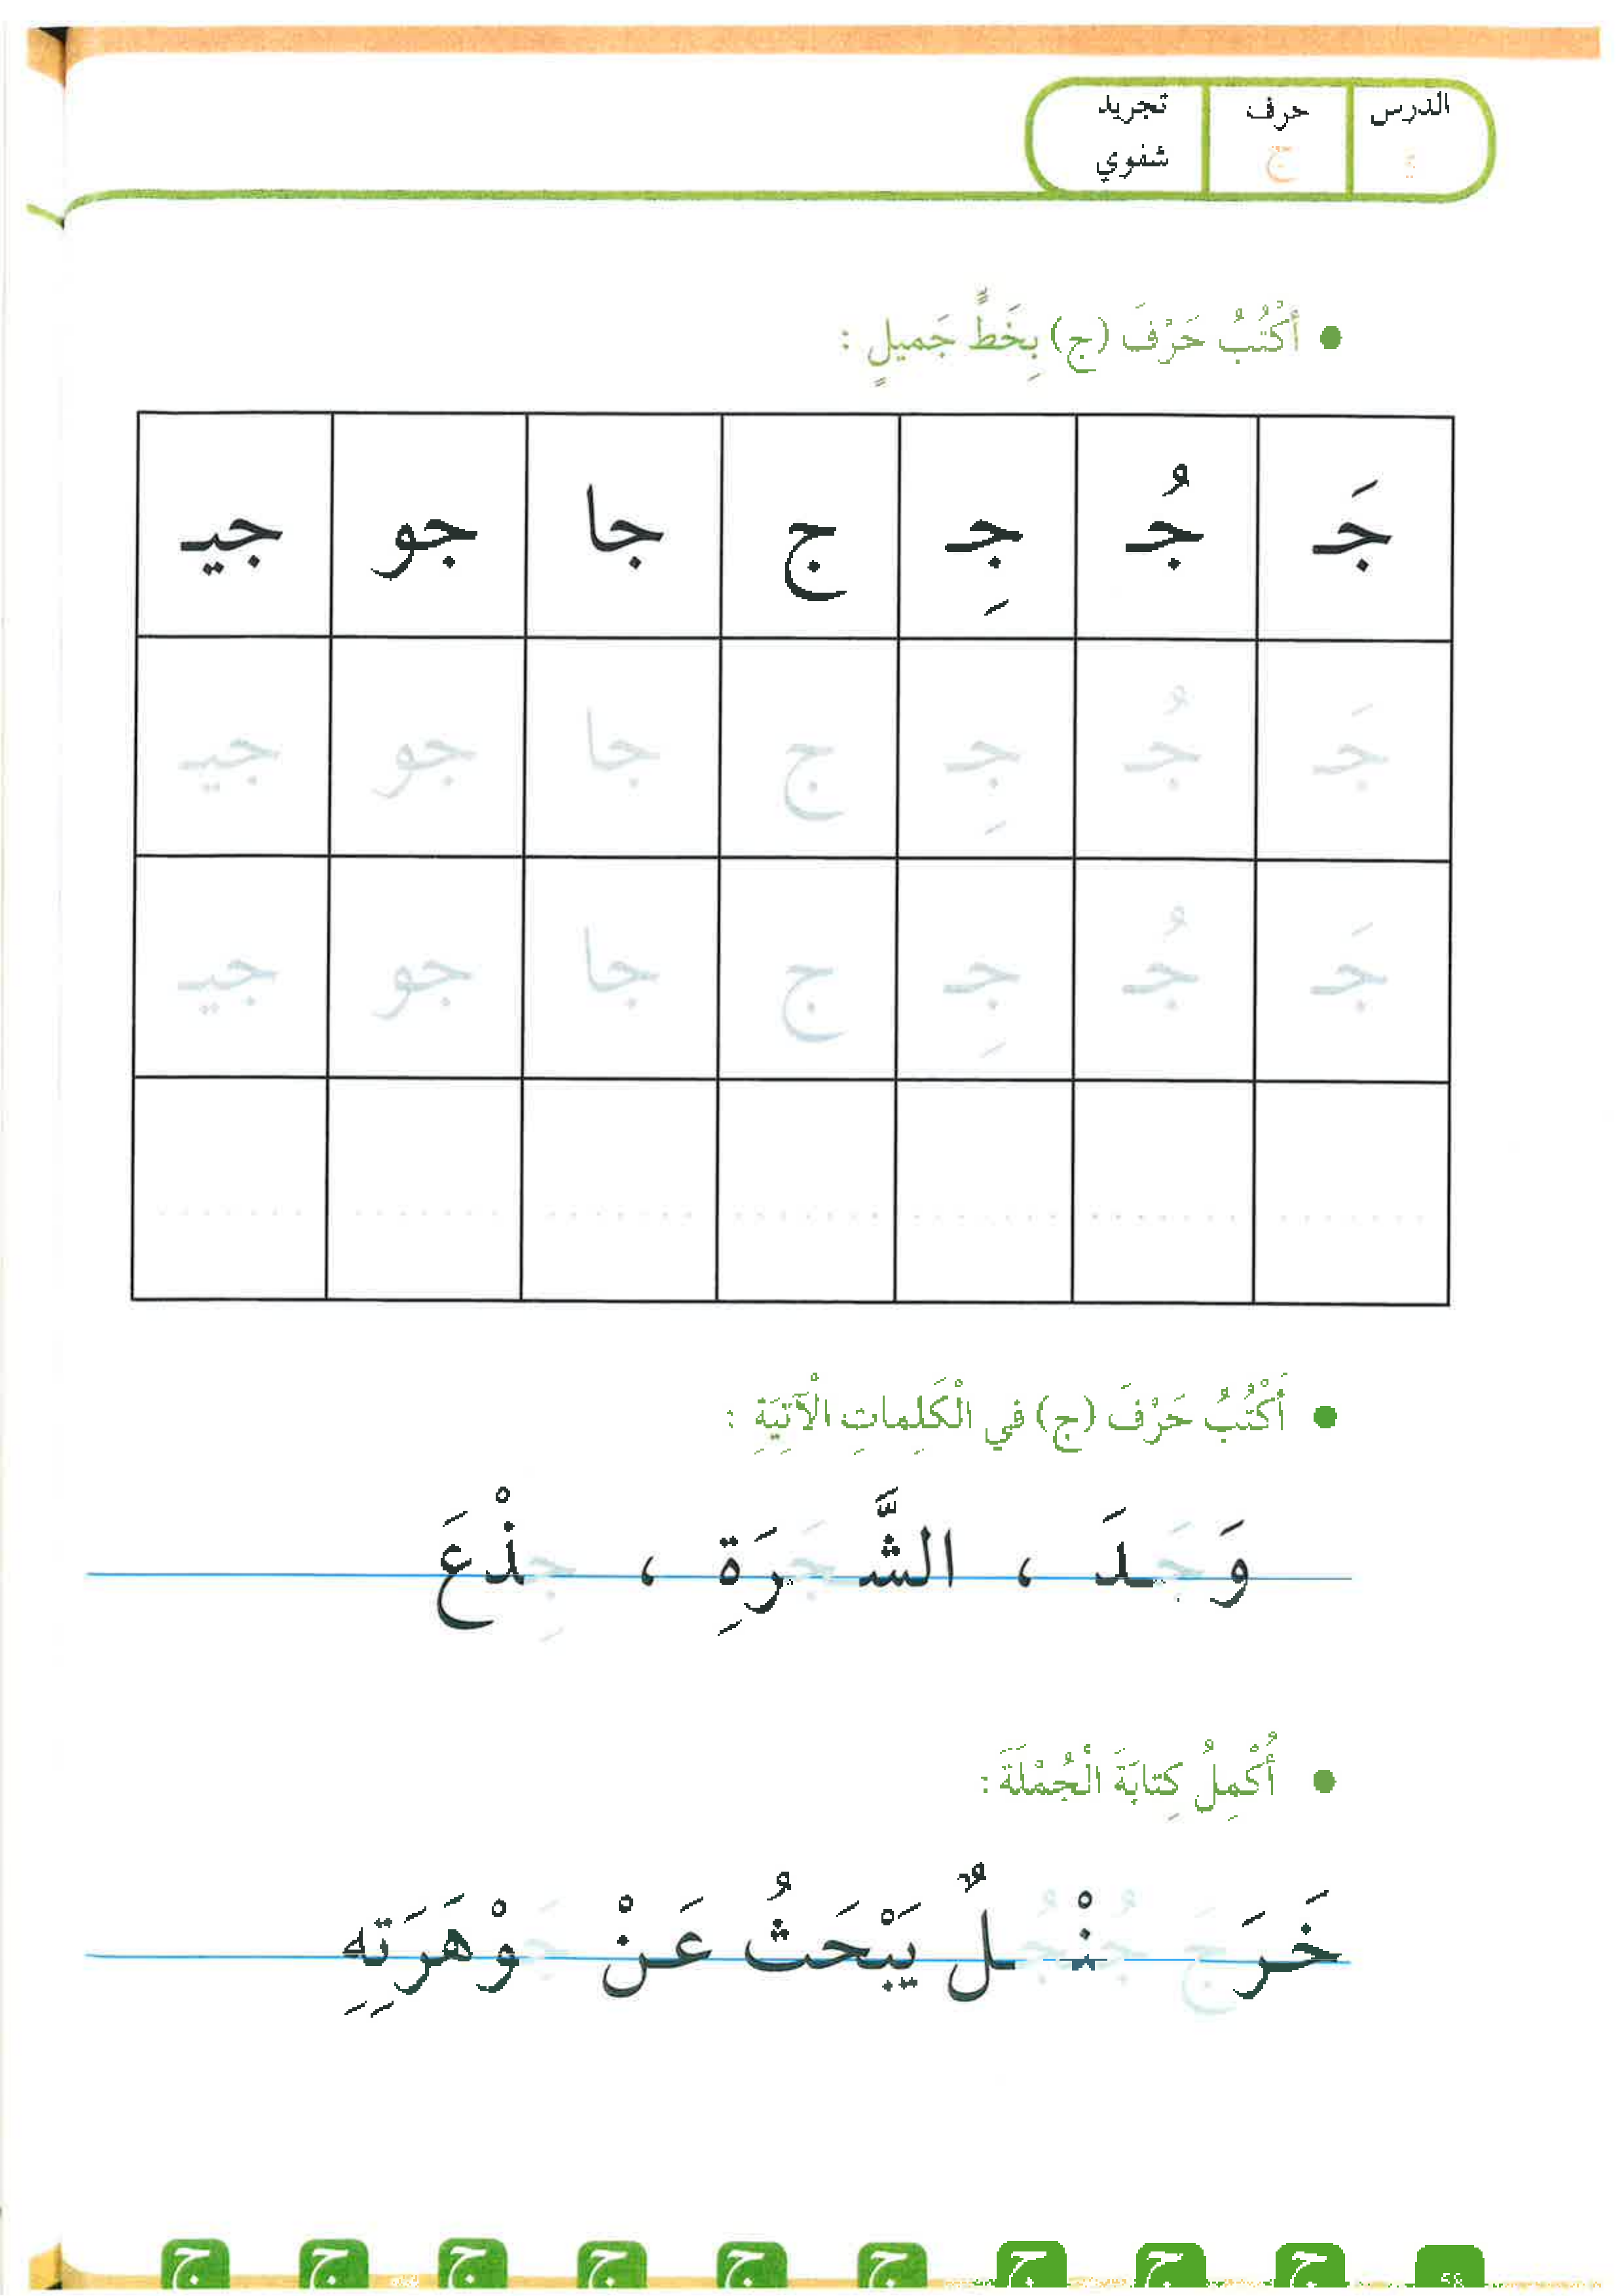 الدرس حرف تجريد
ج شفوي
• أَكْتُبُ حَرْفَ (ج) بِخَطٍّ جَميلٍ :
جَـ جُـ جِـ ج جا جو جيـ
جَـ جُـ جِـ ج جا جو جيـ
جَـ جُـ جِـ ج جا جو جيـ
• أَكْتُبُ حَرْفَ (ج) في الْكَلِماتِ الْآتِيَةِ :
وَجَدَ ، الشَّجَرَةِ ، جِذْعَ
• أُكْمِلُ كِتابَةَ الْجُمْلَةَ :
خَرَجَ جُنْجُلٌ يَبْحَثُ عَنْ جَوْهَرَتِهِ
58 ج ج ج ج ج ج ج ج ج